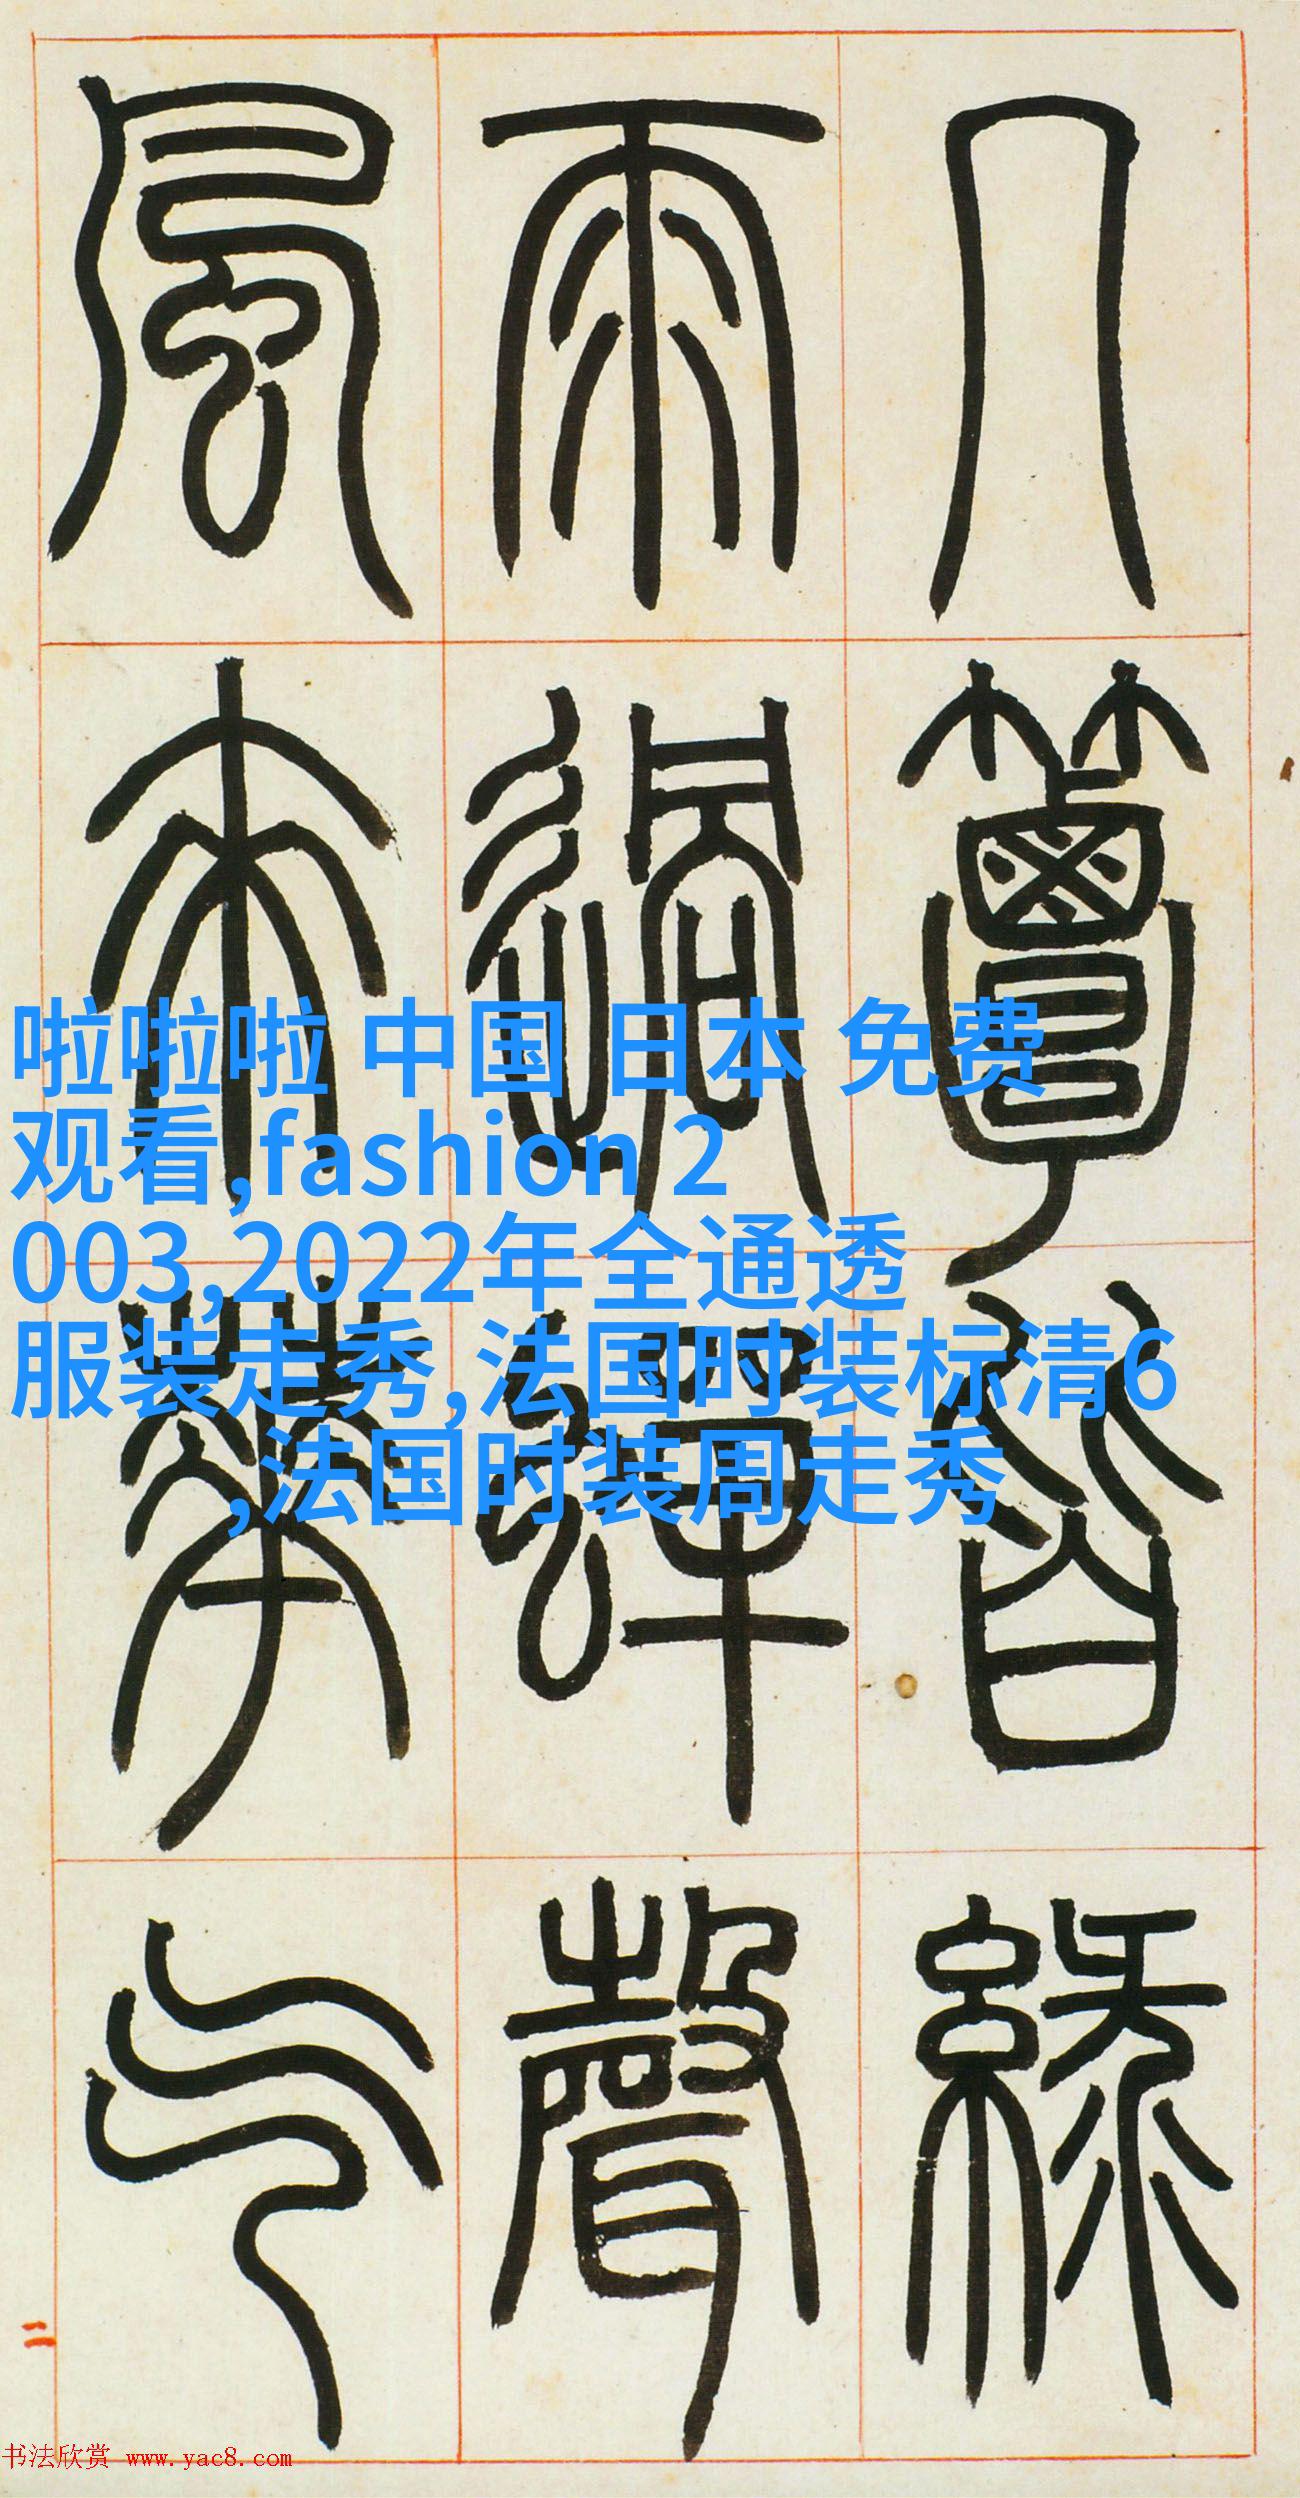 几簟皆綠
雨過蟬聲
風來華气
啦啦啦 中国 日本 免费
观看,fashion 2
003,2022年全通透
服装走秀,法国时装标清6
,法国时装周走秀
二
书法欣赏 www.yac8.com